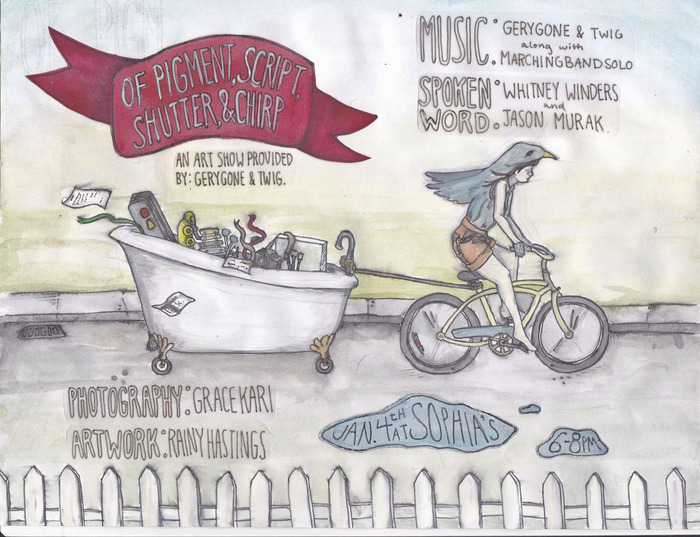 OF PIGMENT, SCRIPT,
SHUTTER, & CHIRP
AN ART SHOW PROVIDED
BY: GERYGONE & TWIG.
MUSIC: GERYGONE & TWIG
along with
MARCHINGBANDSOLO
SPOKEN WORD: WHITNEY WINDERS
and
JASON MURAK
PHOTOGRAPHY: GRACE KARI
ARTWORK: RAINY HASTINGS
JAN. 4TH AT SOPHIA'S
6-8PM